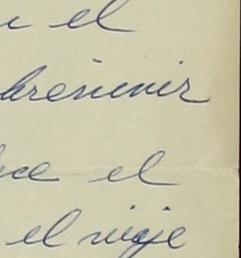 el
brevenir
ce el
el viaje